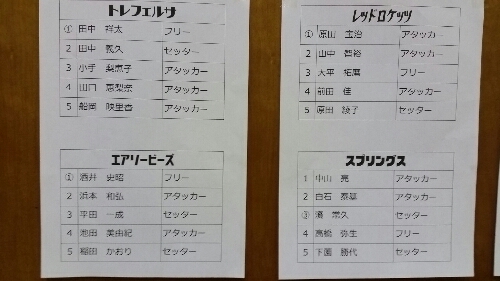 トレフェルサ
① 田中 祥太 フリー
2 田中 義久 セッター
3 小手 梨恵子 アタッカー
4 山口 恵梨奈 アタッカー
5 船岡 映里香 アタッカー
レッドロケッツ
① 原田 宝治 アタッカー
2 山中 智裕 アタッカー
3 大平 拓磨 フリー
4 前田 佳 アタッカー
5 原田 綾子 セッター
エアリービーズ
① 酒井 史昭 フリー
2 浜本 和弘 アタッカー
3 平田 一成 セッター
4 池田 美由紀 アタッカー
5 稲田 かおり アタッカー
スプリングス
1 中山 亮 アタッカー
2 白石 泰基 アタッカー
③ 濱 常久 セッター
4 高橋 弥生 フリー
5 下園 勝代 セッター